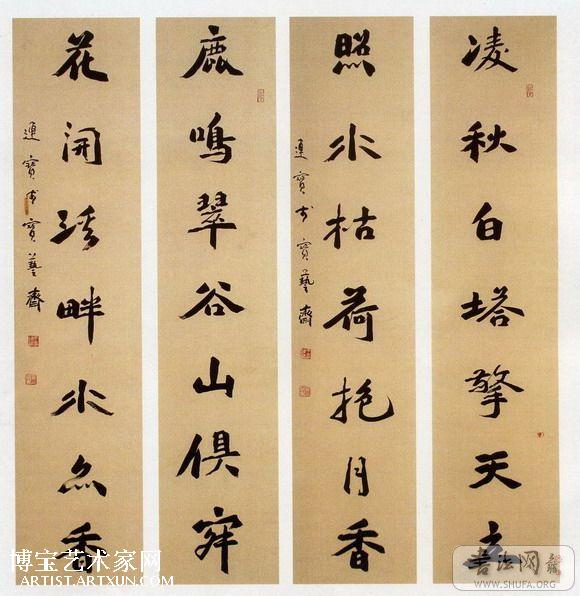 凌秋白塔擎天
照水枯荷抱月香
寶寶藝齋
鹿鳴翠谷山俱
花開溪畔水亦香
寶寶藝齋
博宝艺术家网
ARTIST.ARTXUN.COM
书法网
WWW.SHUFA.ORG